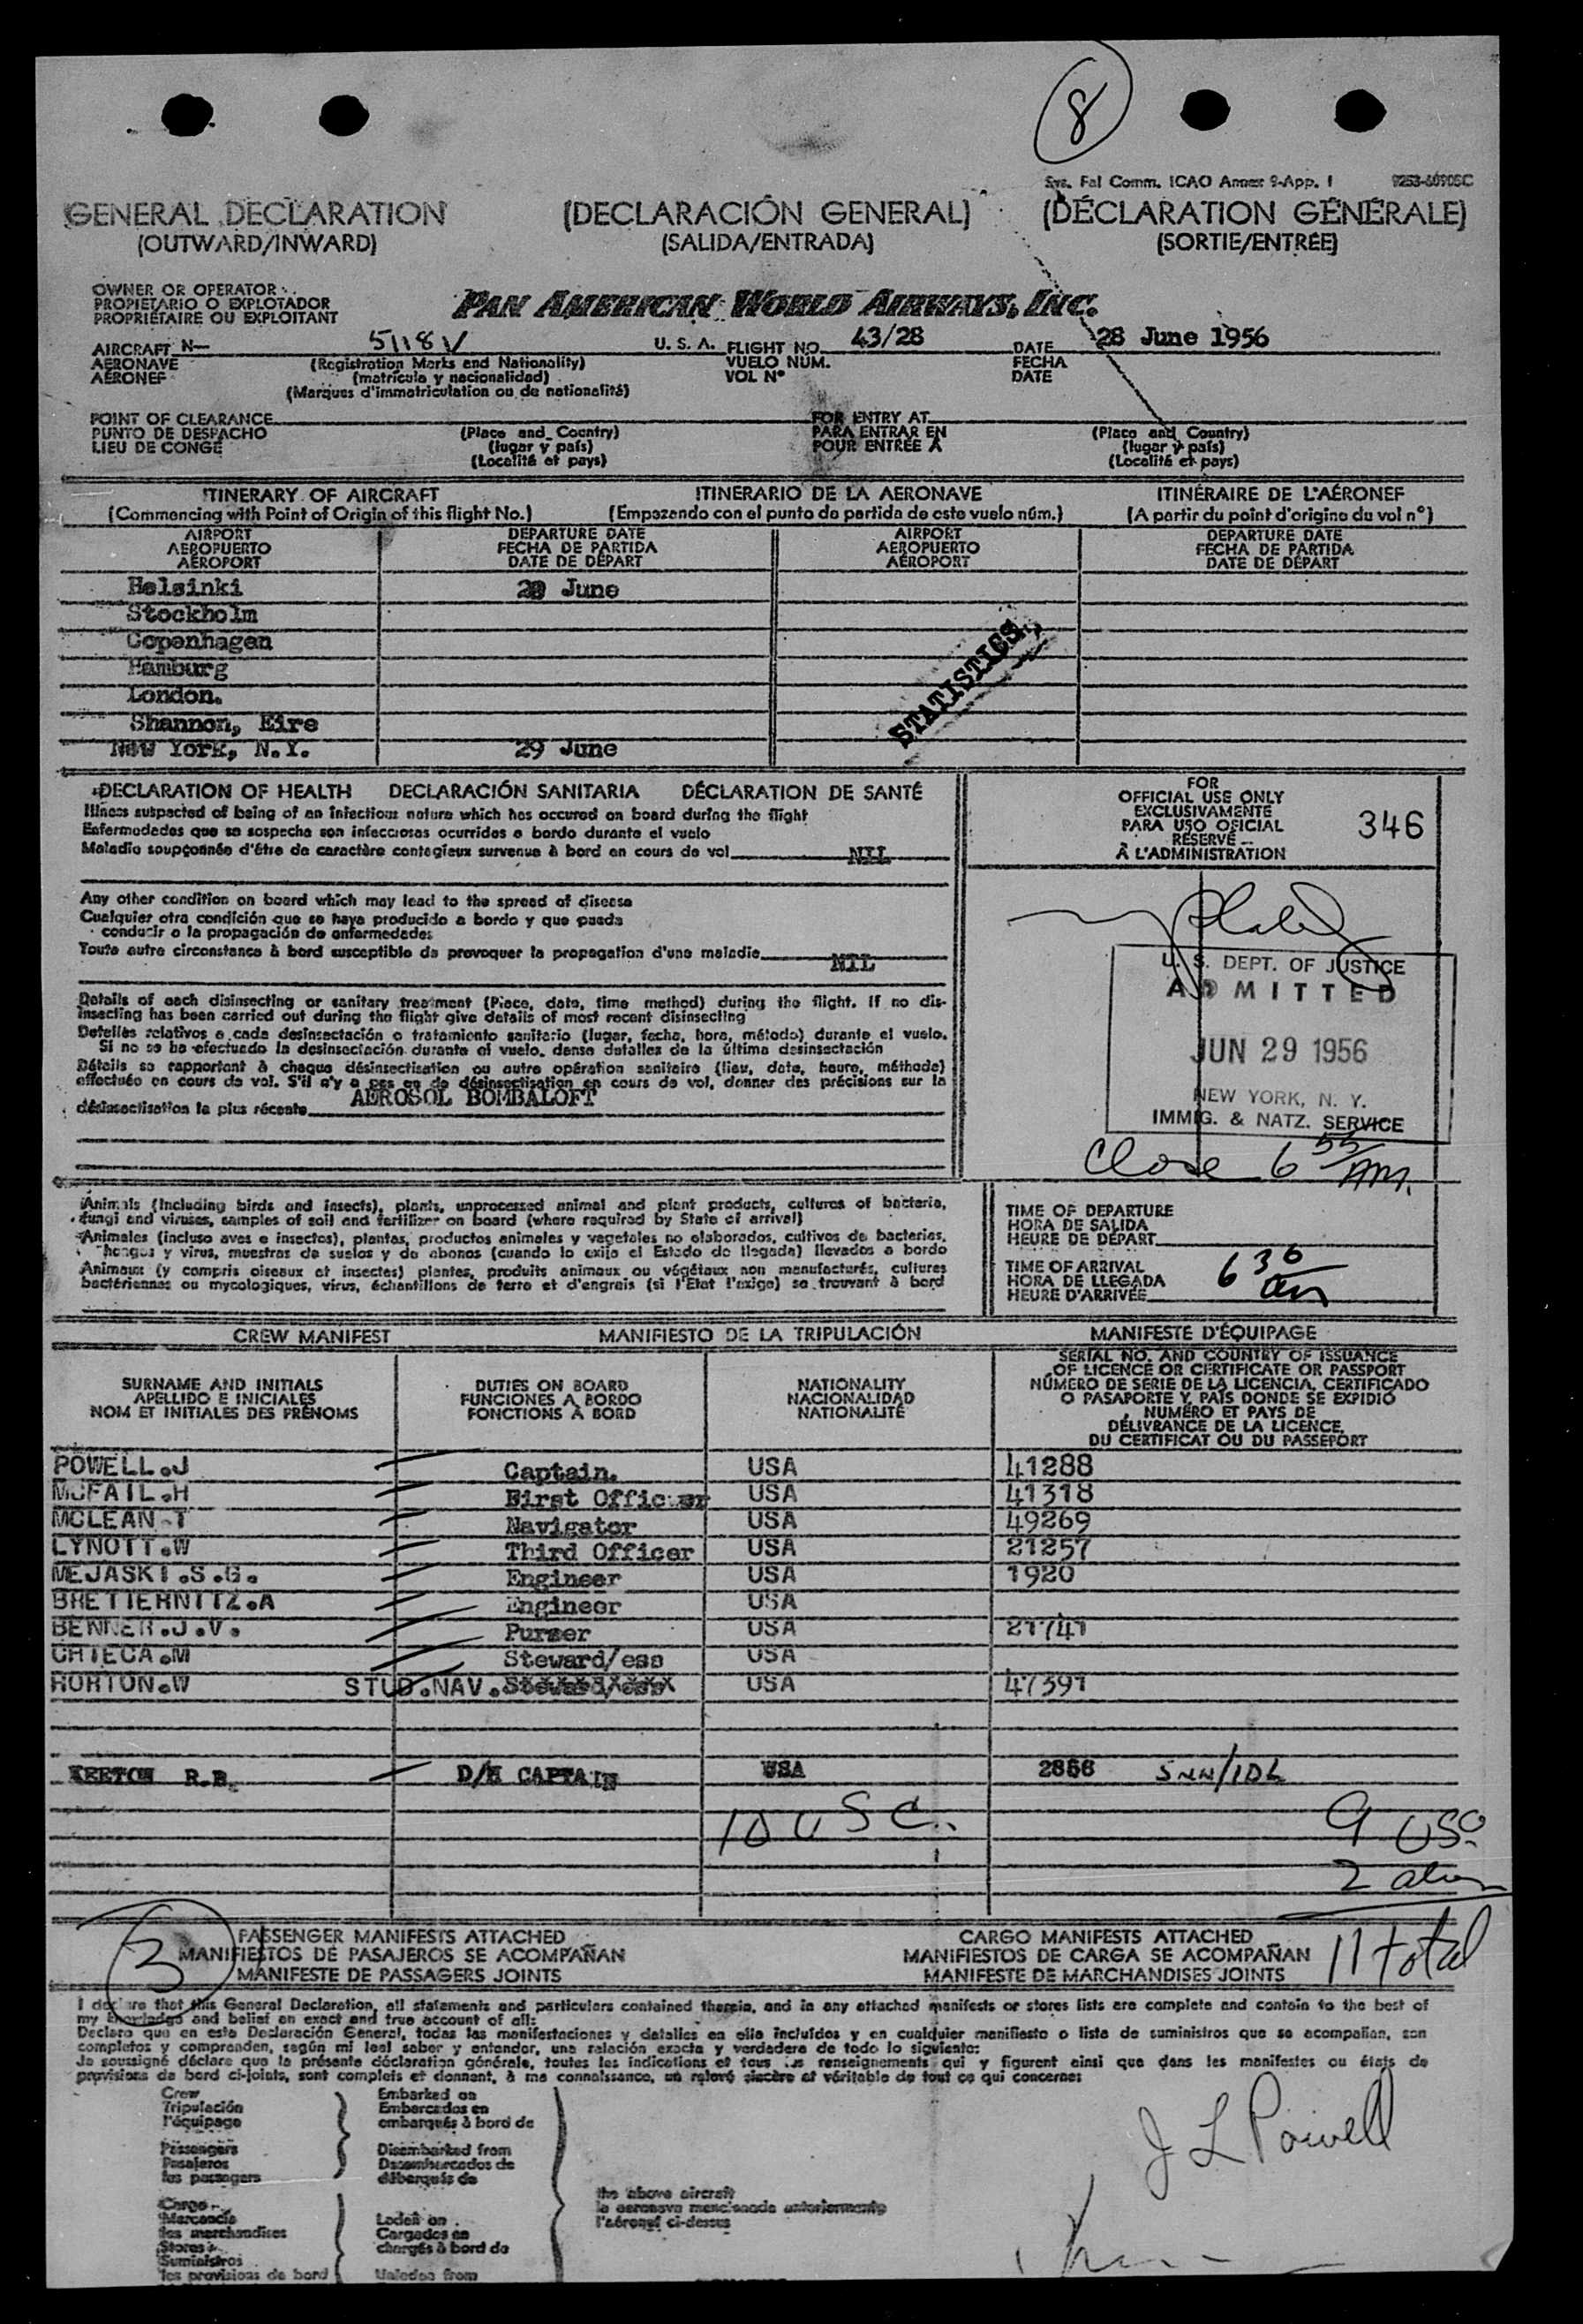 8
Sys. Fal Comm. ICAO Annex 9-App. I 9253-60905C
GENERAL DECLARATION (DECLARACIÓN GENERAL) (DÉCLARATION GÉNÉRALE)
(OUTWARD/INWARD) (SALIDA/ENTRADA) (SORTIE/ENTRÉE)
OWNER OR OPERATOR
PROPIETARIO O EXPLOTADOR
PROPRIÉTAIRE OU EXPLOITANT
PAN AMERICAN WORLD AIRWAYS, INC.
AIRCRAFT N— 5118V U. S. A. FLIGHT NO. 43/28 DATE 28 June 1956
AERONAVE (Registration Marks and Nationality) VUELO NÚM. FECHA
AÉRONEF (matrícula y nacionalidad) VOL Nº DATE
(Marques d'immatriculation ou de nationalité)
POINT OF CLEARANCE FOR ENTRY AT
PUNTO DE DESPACHO (Place and Country) PARA ENTRAR EN (Place and Country)
LIEU DE CONGÉ (lugar y país) POUR ENTRÉE À (lugar y país)
(Localité et pays) (Localité et pays)
ITINERARY OF AIRCRAFT ITINERARIO DE LA AERONAVE ITINÉRAIRE DE L'AÉRONEF
(Commencing with Point of Origin of this flight No.) (Empezando con el punto de partida de este vuelo núm.) (A partir du point d'origine du vol nº)
AIRPORT DEPARTURE DATE AIRPORT DEPARTURE DATE
AEROPUERTO FECHA DE PARTIDA AEROPUERTO FECHA DE PARTIDA
AÉROPORT DATE DE DÉPART AÉROPORT DATE DE DÉPART
Helsinki 28 June
Stockholm
Copenhagen
Hamburg
London.
Shannon, Eire
New York, N.Y. 29 June
STATISTICS
DECLARATION OF HEALTH DECLARACIÓN SANITARIA DÉCLARATION DE SANTÉ
Illness suspected of being of an infectious nature which has occured on board during the flight
Enfermedades que se sospecha son infecciosas ocurridas a bordo durante el vuelo
Maladie soupçonnée d'être de caractère contagieux survenue à bord en cours de vol NIL
FOR
OFFICIAL USE ONLY
EXCLUSIVAMENTE
PARA USO OFICIAL
RÉSERVÉ
À L'ADMINISTRATION
346
Any other condition on board which may lead to the spread of disease
Cualquier otra condición que se haya producido a bordo y que pueda
conducir a la propagación de enfermedades
Toute autre circonstance à bord susceptible de provoquer la propagation d'une maladie NIL
Details of each disinsecting or sanitary treatment (Place, date, time method) during the flight. If no dis-
insecting has been carried out during the flight give details of most recent disinsecting
Detalles relativos a cada desinsectación o tratamiento sanitario (lugar, fecha, hora, método) durante el vuelo.
Si no se ha efectuado la desinsectación durante el vuelo, dense detalles de la última desinsectación
Détails se rapportant à chaque désinsectisation ou autre opération sanitaire (lieu, date, heure, méthode)
effectuée en cours de vol. S'il n'y a pas eu de désinsectisation en cours de vol, donner des précisions sur la
désinsectisation la plus récente AEROSOL BOMBALOFT
U. S. DEPT. OF JUSTICE
ADMITTED
JUN 29 1956
NEW YORK, N. Y.
IMMIG. & NATZ. SERVICE
Close 6 55/AM.
Animals (Including birds and insects), plants, unprocessed animal and plant products, cultures of bacteria,
fungi and viruses, samples of soil and fertilizer on board (where required by State of arrival)
Animales (incluso aves e insectos), plantas, productos animales y vegetales no elaborados, cultivos de bacterias,
hongos y virus, muestras de suelos y de abonos (cuando lo exija el Estado de llegada) llevados a bordo
Animaux (y compris oiseaux et insectes) plantes, produits animaux ou végétaux non manufacturés, cultures
bactériennes ou mycologiques, virus, échantillons de terre et d'engrais (si l'Etat l'exige) se trouvant à bord
TIME OF DEPARTURE
HORA DE SALIDA
HEURE DE DÉPART
TIME OF ARRIVAL
HORA DE LLEGADA
HEURE D'ARRIVÉE
6 30 am
CREW MANIFEST MANIFIESTO DE LA TRIPULACIÓN MANIFESTE D'ÉQUIPAGE
SURNAME AND INITIALS
APELLIDO E INICIALES
NOM ET INITIALES DES PRÉNOMS
DUTIES ON BOARD
FUNCIONES A BORDO
FONCTIONS À BORD
NATIONALITY
NACIONALIDAD
NATIONALITÉ
SERIAL NO. AND COUNTRY OF ISSUANCE
OF LICENCE OR CERTIFICATE OR PASSPORT
NÚMERO DE SERIE DE LA LICENCIA, CERTIFICADO
O PASAPORTE Y PAÍS DONDE SE EXPIDIÓ
NUMÉRO ET PAYS DE
DÉLIVRANCE DE LA LICENCE,
DU CERTIFICAT OU DU PASSEPORT
POWELL.J Captain. USA 41288
MCFAIL.H First Officer USA 41318
MCLEAN T Navigator USA 49269
LYNOTT.W Third Officer USA 21257
MEJASKI.S.G. Engineer USA 1920
BRETTERNITZ.A Engineer USA
BENNER.J.V. Purser USA 21741
CHIECA.M Steward/ess USA
HORTON.W STUD.NAV. Steward/ess USA 47391
KEETON R.B. D/H CAPTAIN USA 2868 SNN/IDL
10 USC. 9 USC
2 alien
11 total
3
PASSENGER MANIFESTS ATTACHED CARGO MANIFESTS ATTACHED
MANIFIESTOS DE PASAJEROS SE ACOMPAÑAN MANIFIESTOS DE CARGA SE ACOMPAÑAN
MANIFESTE DE PASSAGERS JOINTS MANIFESTE DE MARCHANDISES JOINTS
I declare that this General Declaration, all statements and particulars contained therein, and in any attached manifests or stores lists are complete and contain to the best of
my knowledge and belief an exact and true account of all:
Declaro que en esta Declaración General, todas las manifestaciones y detalles en ella incluídos y en cualquier manifiesto o lista de suministros que se acompañan, son
completos y comprenden, según mi leal saber y entender, una relación exacta y verdadera de todo lo siguiente:
Je soussigné déclare que la présente déclaration générale, toutes les indications et tous les renseignements qui y figurent ainsi que dans les manifestes ou états de
provisions de bord ci-joints, sont complets et donnent, à ma connaissance, un relevé sincère et véritable de tout ce qui concerne:
Crew Embarked on
Tripulación Embarcados en
l'équipage embarqués à bord de
Passengers Disembarked from
Pasajeros Desembarcados de
les passagers débarqués de
Cargo
Mercancía Laden on
les marchandises Cargados en
Stores chargés à bord de
Suministros
les provisions de bord Unladen from
the above aircraft
la aeronave mencionada anteriormente
l'aéronef ci-dessus
J L Powell